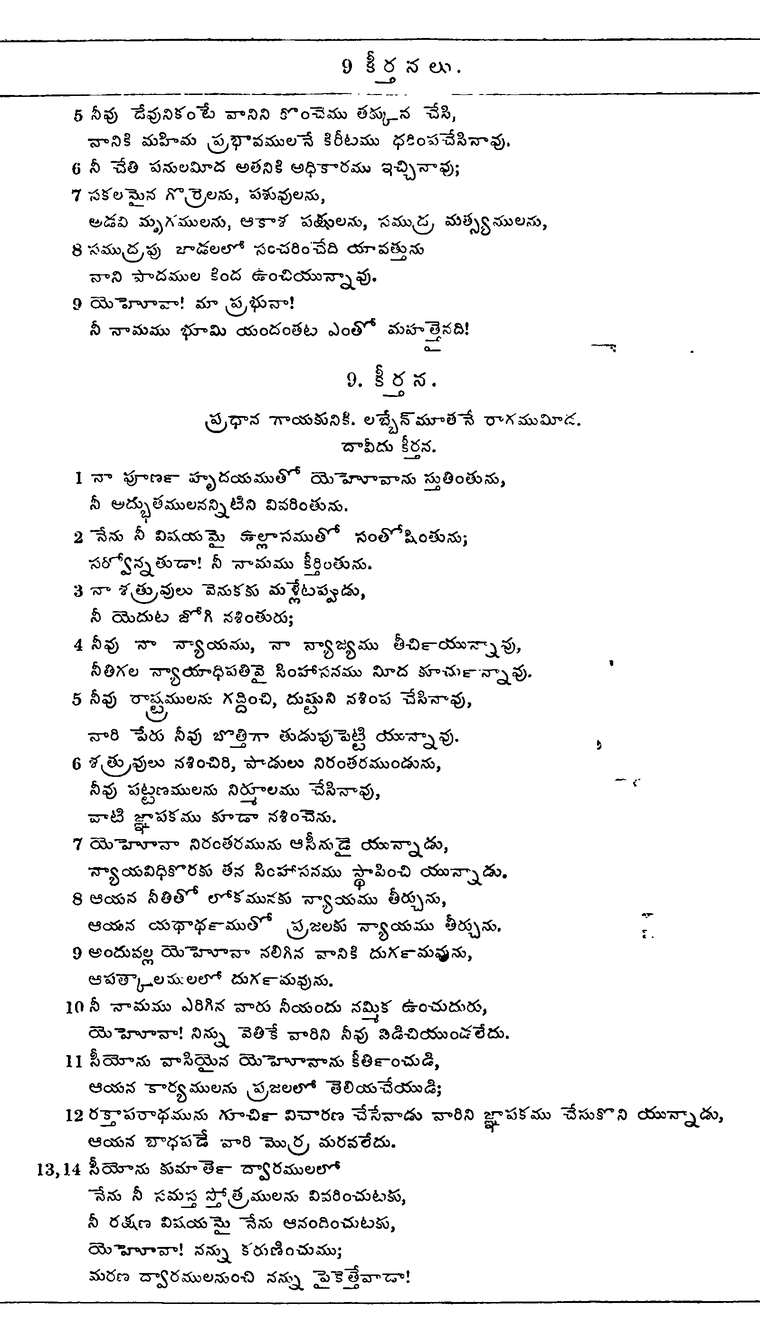 9 కీర్తనలు.
5 నీవు దేవునికంటే వానిని కొంచెము తక్కున చేసి,
వానికి మహిమ ప్రభావములనే కిరీటము ధరింపచేసినావు.
6 నీ చేతి పనులమీద అతనికి అధికారము ఇచ్చినావు;
7 సకలమైన గొర్రెలను, పశువులను,
అడవి మృగములను, ఆకాశ పక్షులను, సముద్ర మత్స్యములను,
8 సముద్రపు బాడలలో సంచరించేది యావత్తును
వాని పాదముల కింద ఉంచియున్నావు.
9 యెహోవా! మా ప్రభువా!
నీ నామము భూమి యందంతట ఎంతో మహత్తైనది!
9. కీర్తన.
ప్రధాన గాయకునికి. లబ్బేన్‌మూతనే రాగముమీద.
దావీదు కీర్తన.
1 నా పూణ౯ హృదయముతో యెహోవాను స్తుతింతును,
నీ అద్భుతములనన్నిటిని వివరింతును.
2 నేను నీ విషయమై ఉల్లాసముతో సంతోషింతును;
సర్వోన్నతుడా! నీ నామము కీర్తింతును.
3 నా శత్రువులు వెనుకకు మళ్లేటప్పుడు,
నీ యెదుట జోగి నశింతురు;
4 నీవు నా న్యాయము, నా న్యాజ్యము తీచి౯యున్నావు,
నీతిగల న్యాయాధిపతివై సింహాసనము మీద కూచు౯న్నావు.
5 నీవు రాష్ట్రములను గద్దించి, దుష్టుని నశింప చేసినావు,
వారి పేరు నీవు బొత్తిగా తుడుపుపెట్టి యున్నావు.
6 శత్రువులు నశించిరి, పాడులు నిరంతరముండును,
నీవు పట్టణములను నిర్మూలము చేసినావు,
వాటి జ్ఞాపకము కూడా నశించెను.
7 యెహోవా నిరంతరమును ఆసీనుడై యున్నాడు,
న్యాయవిధికొరకు తన సింహాసనము స్థాపించి యున్నాడు.
8 ఆయన నీతితో లోకమునకు న్యాయము తీర్చును,
ఆయన యథాథ౯ముతో ప్రజలకు న్యాయము తీర్చును.
9 అందువల్ల యెహోవా నలిగిన వానికి దుగ౯మవును,
ఆపత్కాలములలో దుగ౯మవును.
10 నీ నామము ఎరిగిన వారు నీయందు నమ్మిక ఉంచుదురు,
యెహోవా! నిన్ను వెతికే వారిని నీవు విడిచియుండలేదు.
11 సీయోను వాసియైన యెహోవాను కీతి౯ంచుడి,
ఆయన కార్యములను ప్రజలలో తెలియచేయుడి;
12 రక్తాపరాథమును గూచి౯ విచారణ చేసేవాడు వారిని జ్ఞాపకము చేసుకొని యున్నాడు,
ఆయన బాధపడే వారి మొర్ర మరవలేదు.
13, 14 సీయోను కుమాతె౯ ద్వారములలో
నేను నీ సమస్త స్తోత్రములను వివరించుటకు,
నీ రక్షణ విషయమై నేను ఆనందించుటకు,
యెహోవా! నన్ను కరుణించుము;
మరణ ద్వారములనుంచి నన్ను పైకెత్తేవాడా!